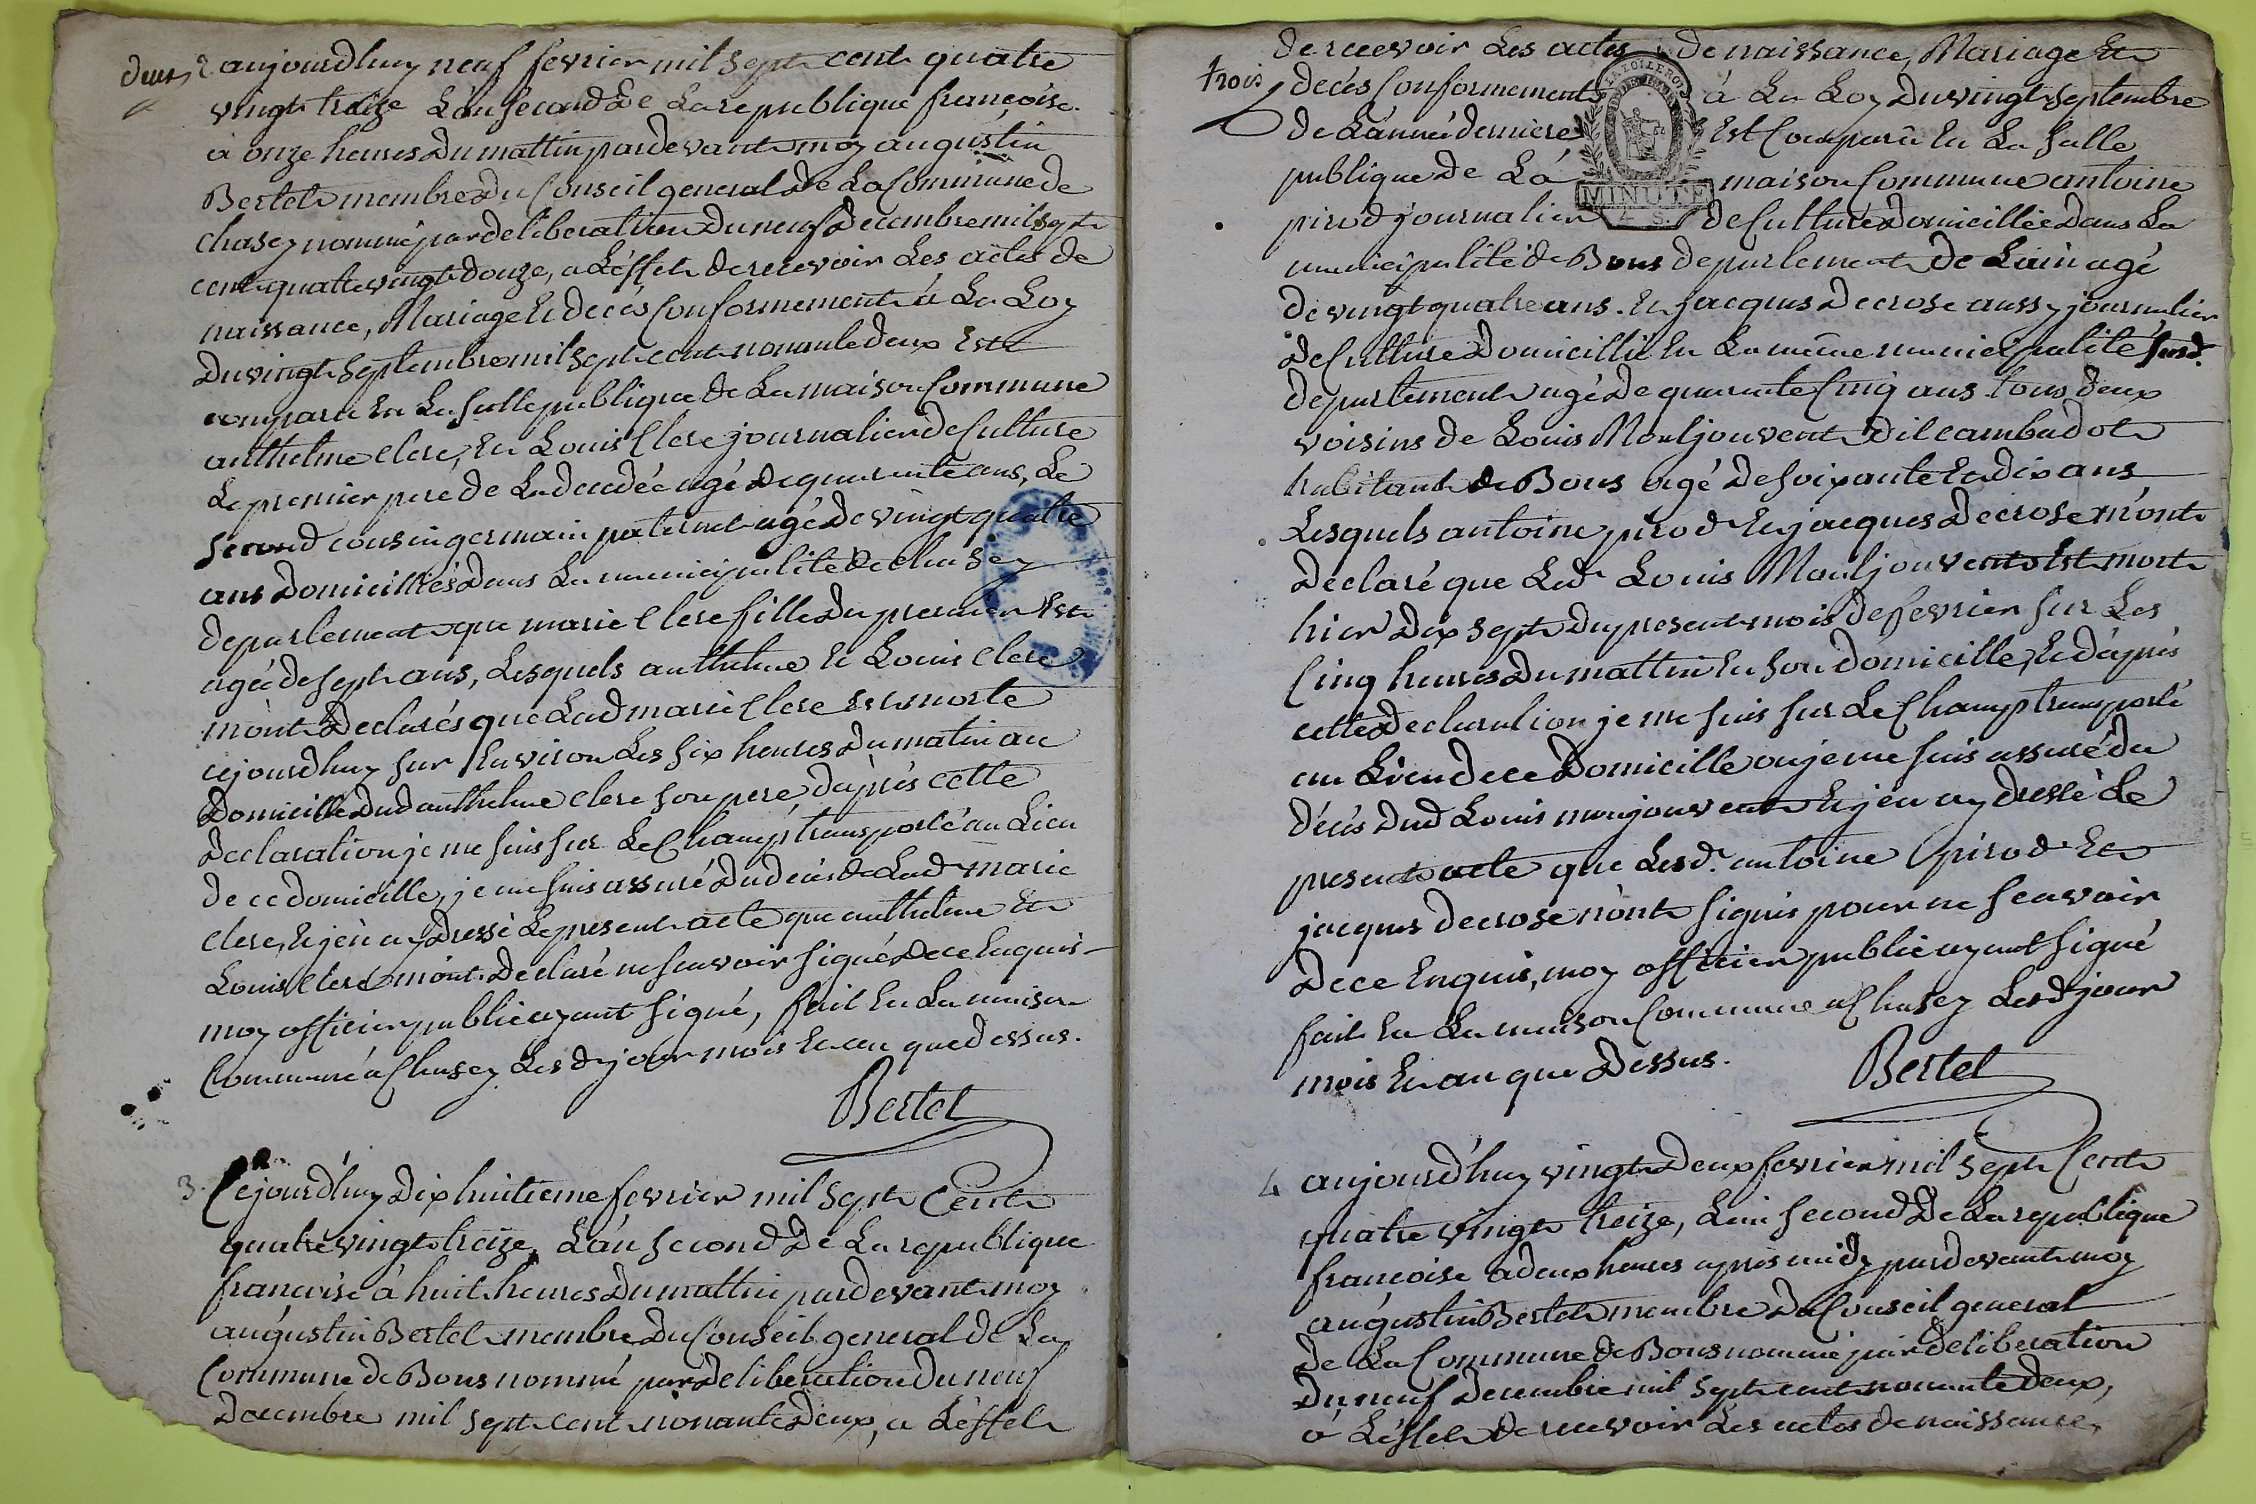 deux 2 aujourdhuy neuf fevrier mil sept cent quatre
vingt treize L'an second De La republique françoise
a onze heures Du mattin pardevant moy augustin
Bertet membre Du Conseil general De La Commune de
chasey nommé par deliberation Du neuf Decembre mil sept
cent quatre vingt douze, a L'effet de recevoir Les actes de
naissance, Mariage Et decés Conformement à La Loy
Du vingt septembre mil sept cent nonante deux Est
comparu En La salle publique de La maison Commune
anthelme clerc, Et Louis Clerc journalier de Culture
Le premier pere de La decedée agé de quarante ans, Le
second cousin germain paternel agé De vingt quatre
ans Domiciliés Dans La municipalité De chasey
departement que marie Clerc fille Du premier Est
agée de sept ans, Lesquels anthelme Et Louis clerc
m'ont Declarés que Lad marie Clerc est morte
cejourdhuy sur Environ Les six heures Du matin au
Domicille Dud anthelme clerc son pere D'après cette
Declaration je me suis sur Le Champ transporté au Lieu
de ce domicille, je me suis assuré Du decés de Lad marie
clerc, Et j'en ay Dressé Le present acte que anthelme Et
Louis Clerc m'ont Declaré ne scavoir signé De ce Enquis
moy officier public ayant signé, fait En La maison
Commune à Chasey Les d jour mois Et an que dessus.
Bertet
3. Cejourdhuy Dix huitieme fevrier mil sept Cent
quatre vingt treize, L'an second De La republique
françoise à huit heures Du mattin pardevant moy
augustin Bertet membre Du Conseil general de La
Commune de Bons nommé par Deliberation Du neuf
Decembre mil sept cent nonante Deux, a L'effet
de recevoir Les actes de naissance, Mariage Et
trois decés Conformement à La Loy Du vingt septembre
de L'année derniere Est Comparu En La salle
publique de La maison Commune antoine
MINUTE
4 S.
pirod journalier de Culture Domicillié Dans La
municipalité de Bons departement de L'ain agé
de vingt quatre ans. Et jacques Decrose aussy journalier
de Culture Domicillié En La même municipalité susd.
departement agé De quarante Cinq ans tous deux
voisins de Louis Monljouvent Dit cambadot
habitant de Bons agé De soixante Et dix ans
Lesquels antoine pirod Et jacques Decrose m'ont
Declaré que Led Louis Monljouvent Est mort
hier Dix sept Du present mois de fevrier sur Les
Cinq heures Du mattin En son Domicille, Et d'après
cette Declaration je me suis sur Le Champ transporté
au Lieu de ce Domicille ou je me suis assuré du
décés Dud Louis monjouvent Et j'en ay dressé Le
present acte que Lesd. antoine pirod Et
jacques decrose n'ont signés pour ne scavoir
De ce Enquis, moy officier public ayant signé
fait En La maison Commune a Chasey Lesd jour
mois Et an que Dessus.
Bertet
4 aujourd'huy vingt Deux fevrier mil sept Cent
quatre vingt treize, L'an second De La republique
françoise a deux heures après midy pardevant moy
augustin Bertet membre Du Conseil general
De La Commune de Bons nommé par deliberation
Du neuf Decembre mil sept cent nonante Deux,
à L'effet De recevoir Les actes de naissance,